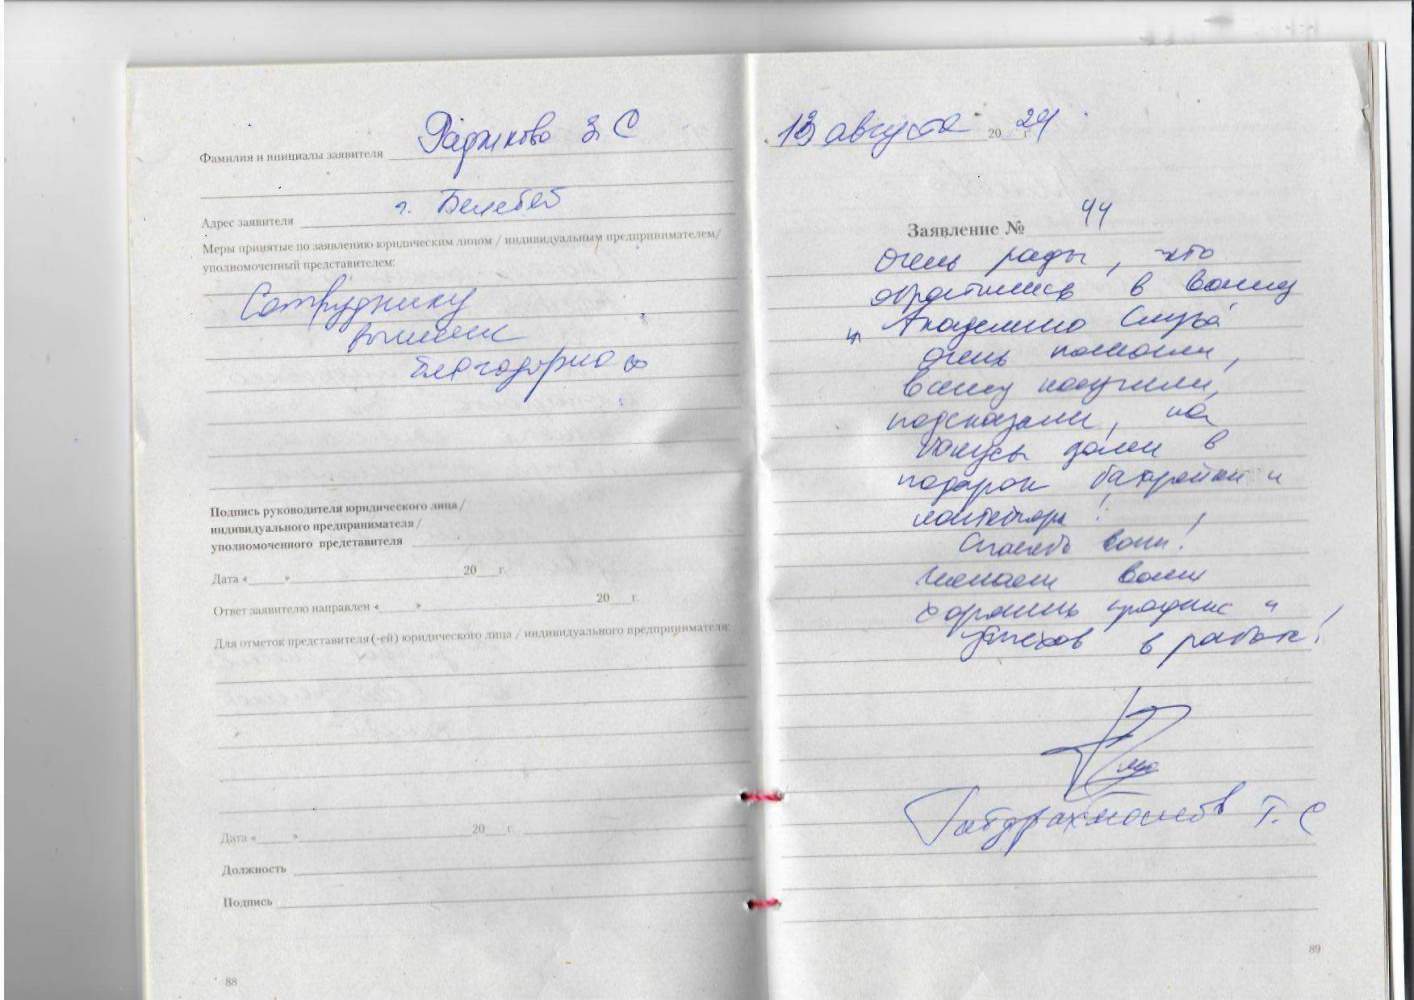 Фамилия и инициалы заявителя Радикова З С
Адрес заявителя г. Белебей
Меры принятые по заявлению юридическим лицом / индивидуальным предпринимателем/
уполномоченный представителем:
Сотруднику
вынесен
благодарность
Подпись руководителя юридического лица/
индивидуального предпринимателя /
уполномоченного представителя
Дата «____»____20__г.
Ответ заявителю направлен «____»____20__г.
Для отметок представителя (-ей) юридического лица / индивидуального предпринимателя:
Дата «____»____20__г.
Должность
Подпись
88
13 августа 2024 г.
Заявление № 44
Очень рады, что
обратились в Вашу
"Академию Слуха"
очень помогли,
всему научили,
подсказали, на
бонусы дали в
подарок батарейки и
Спасибо вам!
Желаем вам
успехов в работе!
Габдрахманов Т. С
89